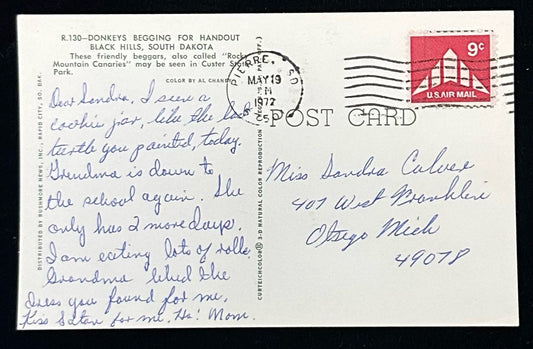 R.130—DONKEYS BEGGING FOR HANDOUT
BLACK HILLS, SOUTH DAKOTA
These friendly beggars, also called "Rocky
Mountain Canaries" may be seen in Custer State
Park.
COLOR BY AL CHAN
Dear Sandra, I seen a
cookie jar, like the
turtle you painted, today.
Grandma is down to
the school again. She
only has 2 more days.
I am eating lots of rolls.
Grandma liked the
dress you found for me.
Kiss Satan for me. Ha! Mom.
DISTRIBUTED BY RUSHMORE NEWS, INC., RAPID CITY, SO. DAK.
CURTEICHCOLOR® 3-D NATURAL COLOR REPRODUCTION
PIERRE, SD
MAY 19
PM
1972
9¢
U.S. AIR MAIL
POST CARD
Miss Sandra Culver
407 West Franklin
Otsego Mich
49078